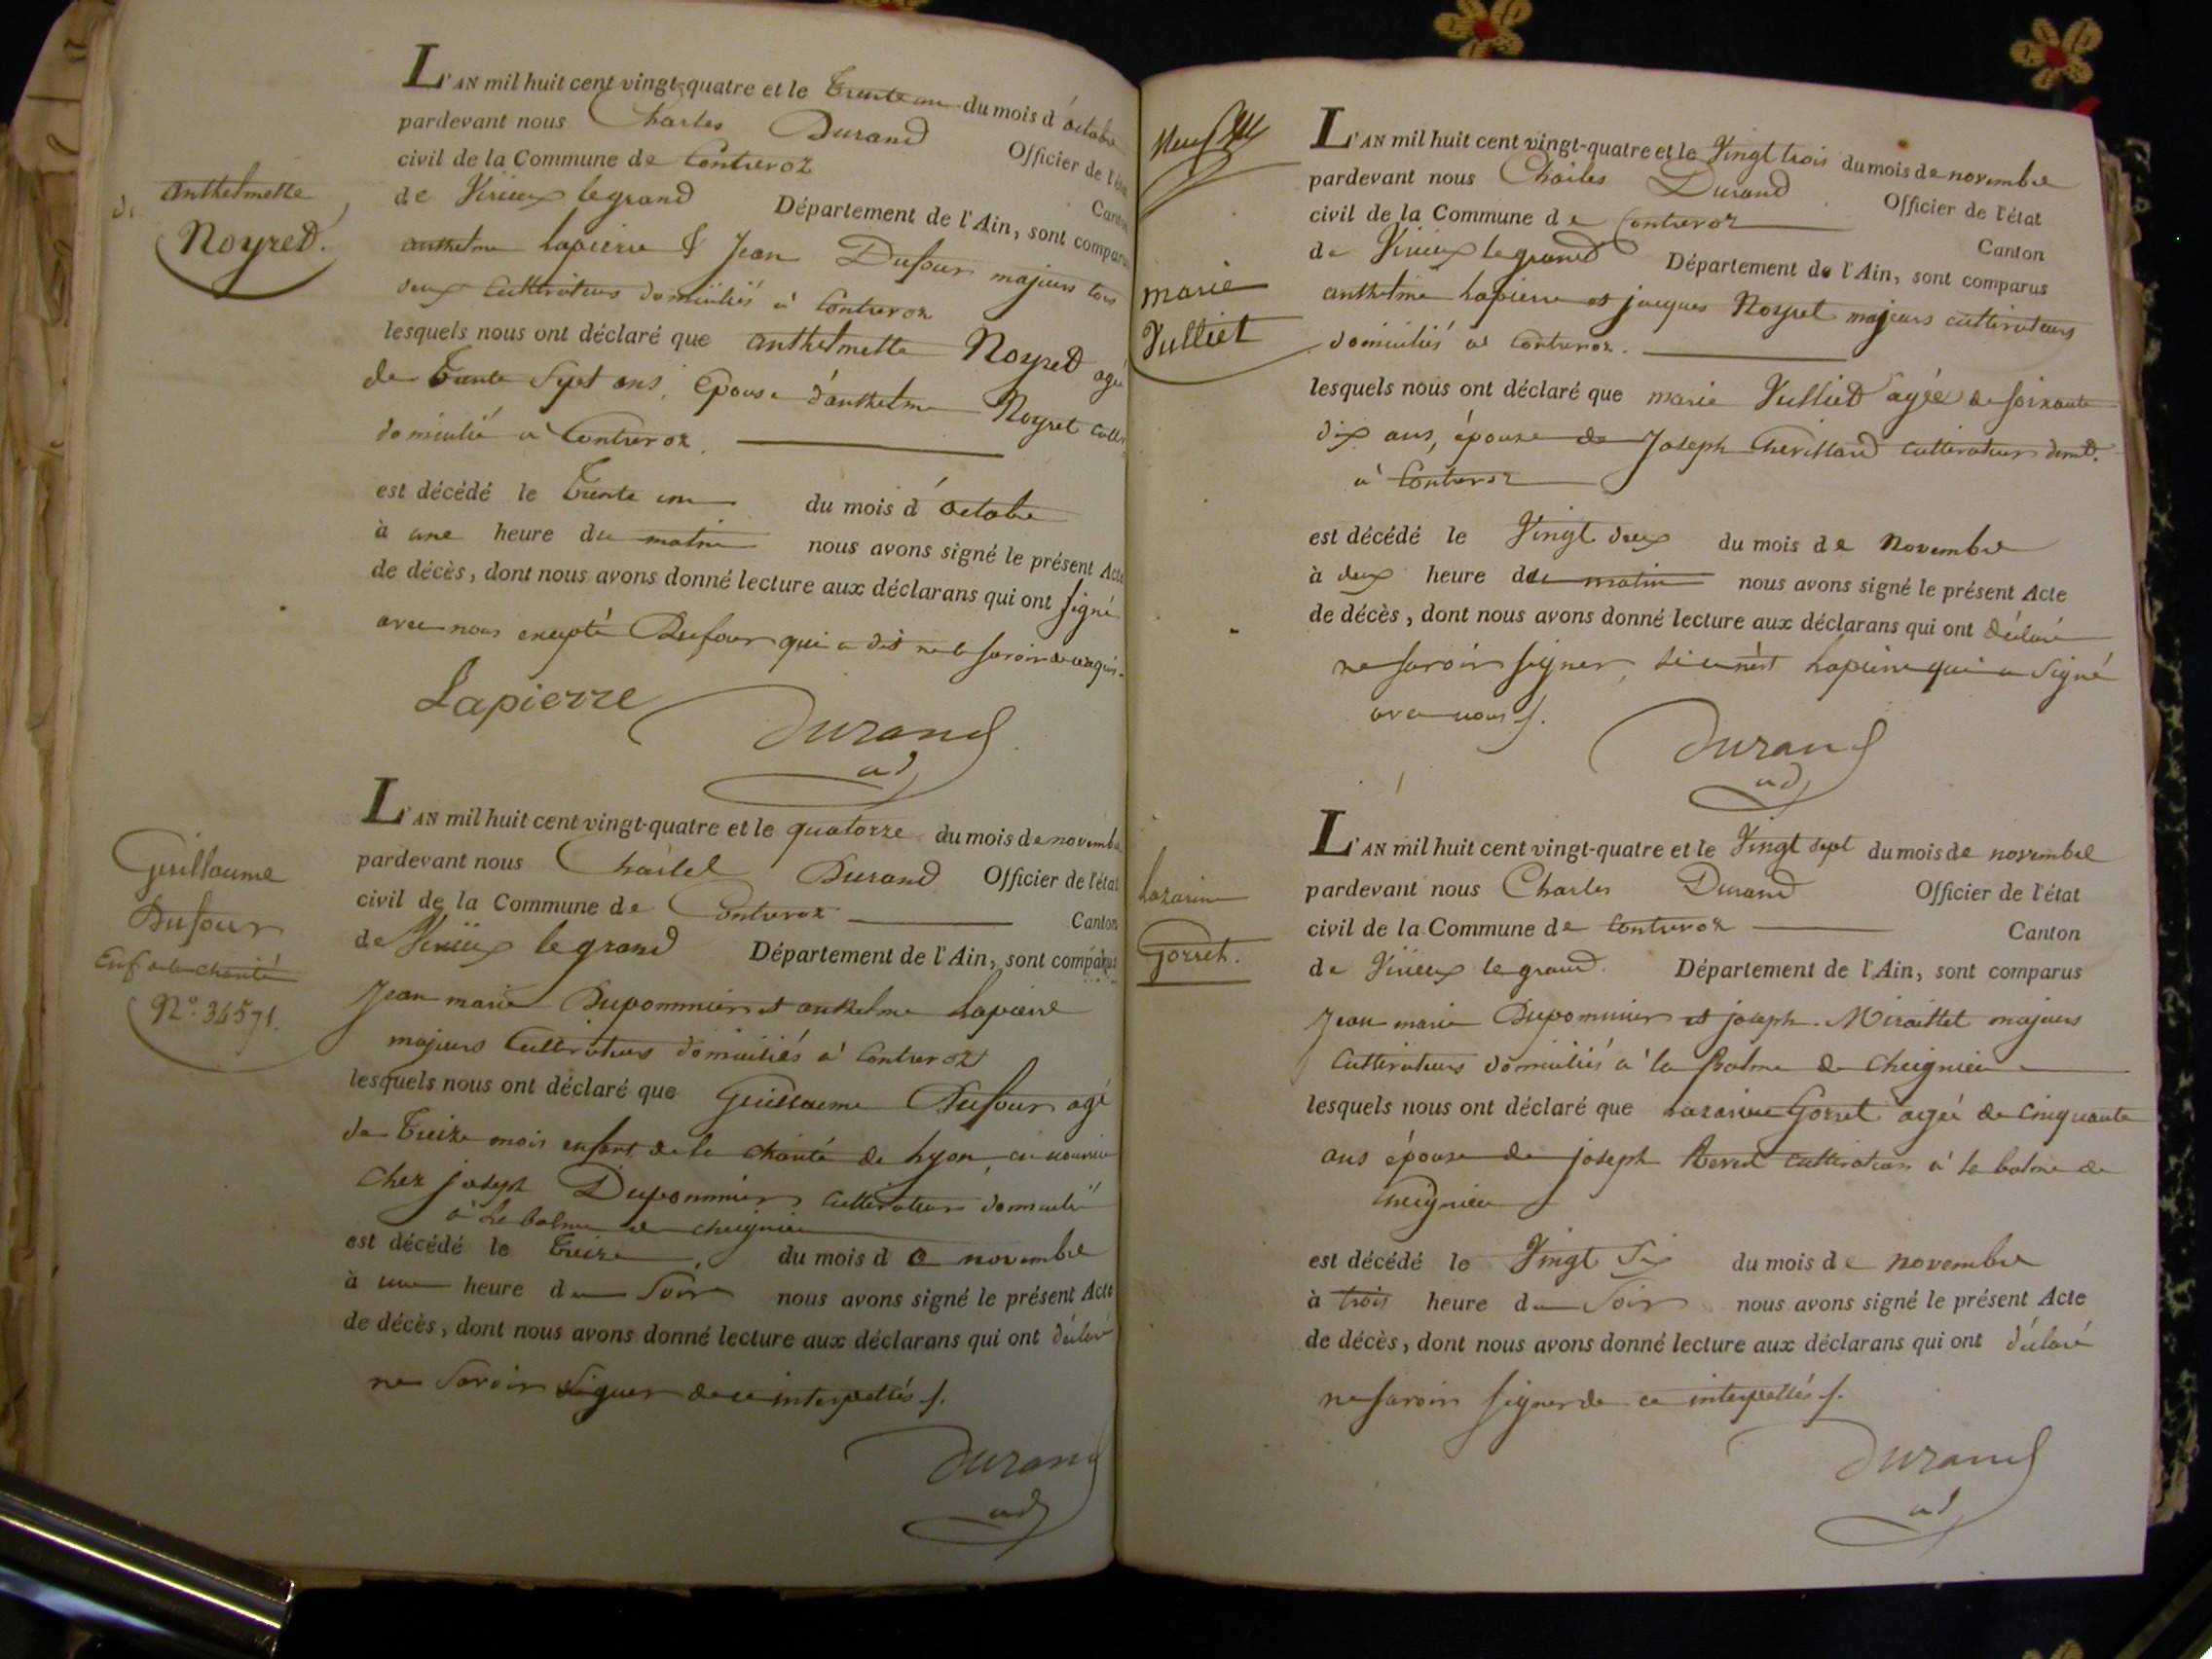 anthelmette
Noyret.
L'AN mil huit cent vingt-quatre et le trente un du mois d'octobre
pardevant nous Charles Durand Officier de l'état
civil de la Commune de Contrevoz Canton
de Virieux le grand Département de l'Ain, sont comparus
anthelme Lapierre & Jean Dufour majeurs tous
deux cultivateurs domiciliés à Contrevoz
lesquels nous ont déclaré que anthelmette Noyret agée
de trente sept ans, épouse d'anthelme Noyret
domicilié à Contrevoz.
est décédé le trente un du mois d'octobre
à une heure du matin nous avons signé le présent Acte
de décès, dont nous avons donné lecture aux déclarans qui ont signé
avec nous excepté Dufour qui a dit ne le savoir de ce requis.
Lapierre Durand
adj
Guillaume
Dufour
Enf de la charité
N.º 34571.
L'AN mil huit cent vingt-quatre et le quatorze du mois de novembre
pardevant nous Charles Durand Officier de l'état
civil de la Commune de Contrevoz Canton
de Virieux le grand Département de l'Ain, sont comparus
Jean marie Dupommier et anthelme Lapierre
majeurs Cultivateurs domiciliés à Contrevoz
lesquels nous ont déclaré que Guillaume Dufour agé
de treize mois enfant de la charité de Lyon, en nourrice
chez joseph Dupommier cultivateur domicilié
à la balme de cheignieu
est décédé le treize du mois de novembre
à une heure du soir nous avons signé le présent Acte
de décès, dont nous avons donné lecture aux déclarans qui ont déclaré
ne savoir signer de ce interpellés /.
Durand
adj
marie
Vulliet
L'AN mil huit cent vingt-quatre et le Vingt trois du mois de novembre
pardevant nous Charles Durand Officier de l'état
civil de la Commune de Contrevoz Canton
de Virieux le grand Département de l'Ain, sont comparus
anthelme Lapierre et jacques Noyret majeurs cultivateurs
domiciliés à Contrevoz.
lesquels nous ont déclaré que marie Vulliet agée de soixante
dix ans, épouse de Joseph Chevillard cultivateur domt.
à Contrevoz
est décédé le Vingt deux du mois de Novembre
à deux heure du matin nous avons signé le présent Acte
de décès, dont nous avons donné lecture aux déclarans qui ont déclaré
ne savoir signer, si ce n'est Lapierre qui a signé
avec nous /.
Durand
adj
Lazarine
Gorret.
L'AN mil huit cent vingt-quatre et le Vingt sept du mois de novembre
pardevant nous Charles Durand Officier de l'état
civil de la Commune de Contrevoz Canton
de Virieux le grand. Département de l'Ain, sont comparus
Jean marie Dupommier et joseph Miraillet majeurs
cultivateurs domiciliés à la Balme de Cheignieu
lesquels nous ont déclaré que Lazarine Gorret agée de cinquante
ans épouse de joseph cultivateur à la balme de
cheignieu
est décédé le Vingt Six du mois de novembre
à trois heure du soir nous avons signé le présent Acte
de décès, dont nous avons donné lecture aux déclarans qui ont déclaré
ne savoir signer de ce interpellés /.
Durand
adj